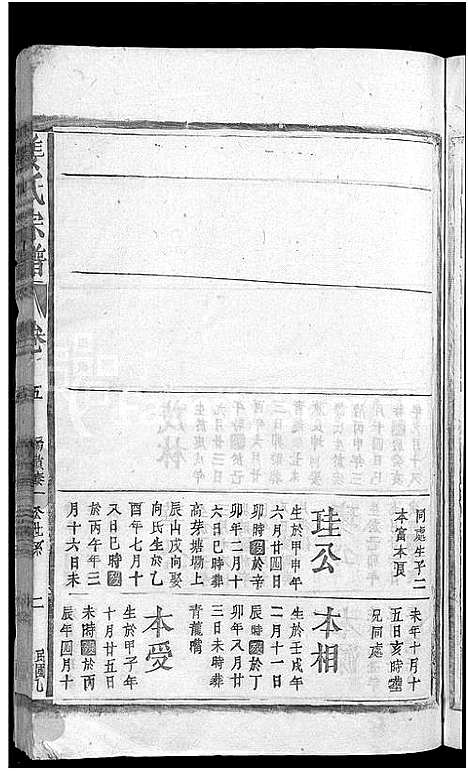 同處生子二
本富本良
珪公
生於甲申年
六月廿四日
卯時歿於辛
卯年二月十
六日巳時葬
高芽塘塆上
辰山戌向娶
向氏生於乙
酉年七月十
又日巳時歿
於丙午年三
月十六日未
未年十月十
五日亥時葬
兄同處
本相
生於壬戌年
二月十一日
辰時歿於一
卯年又月廿
三日未時葬
青龍嘴
本受
生於甲子年
十月廿五日
未時歿於丙
辰年四月十
姜氏宗譜
卷
五
二
民國九